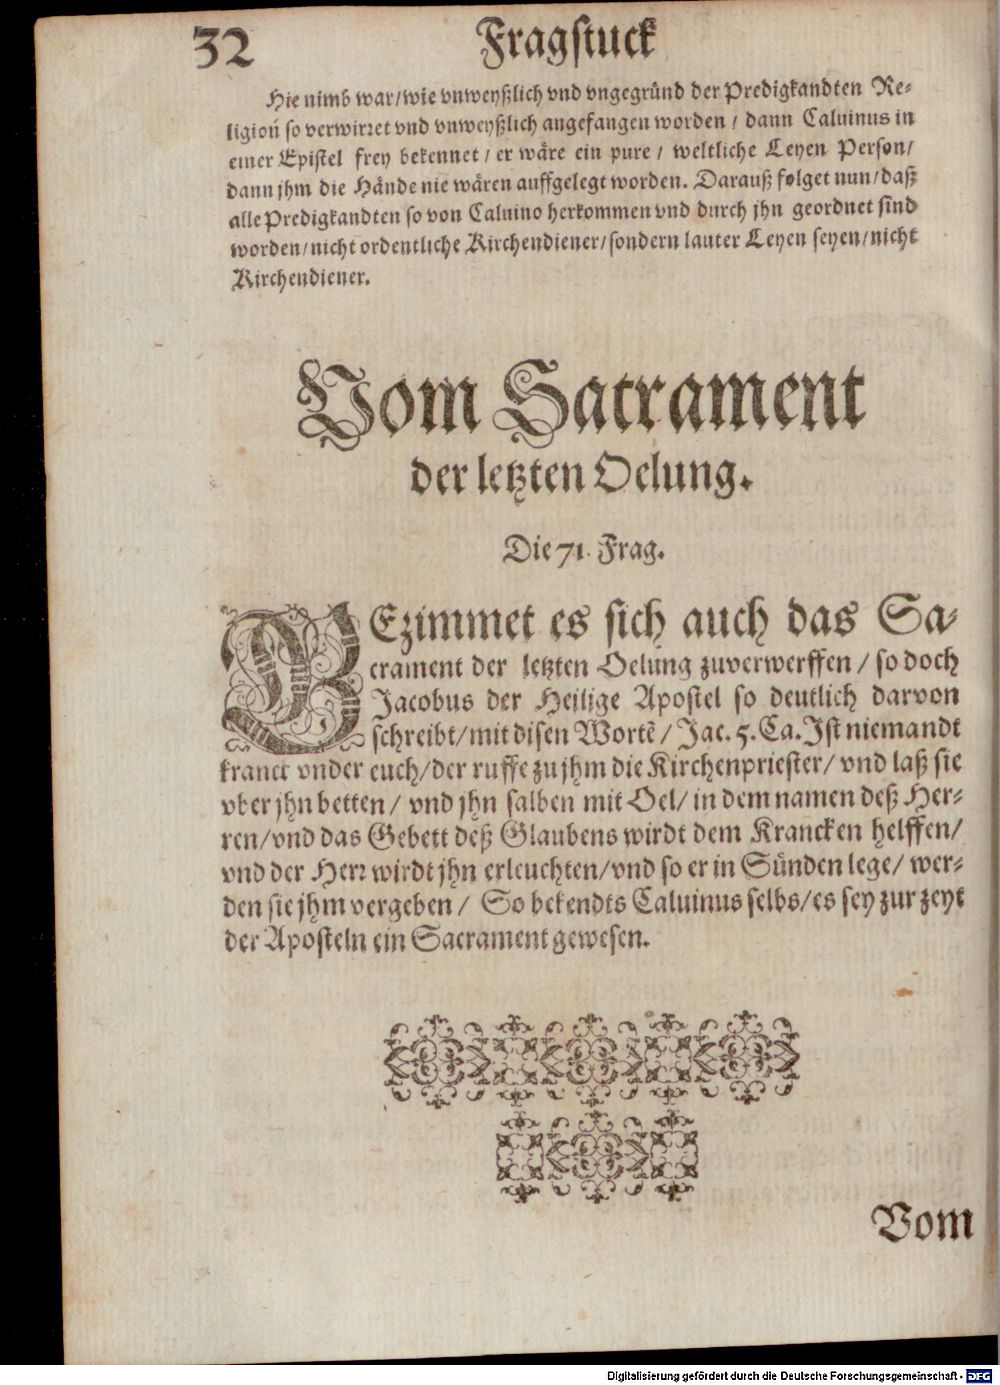 32 Fragstuck
Hie nimb war/wie vnweyßlich vnd vngegründ der Predigkandten Re-
ligion so verwirret vnd vnweyßlich angefangen worden / dann Caluinus in
einer Epistel frey bekennet / er wäre ein pure / weltliche Leyen Person/
dann jhm die Hände nie wären auffgelegt worden. Darauß folget nun/daß
alle Predigkandten so von Caluino herkommen vnd durch jhn geordnet sind
worden/nicht ordentliche Kirchendiener/sondern lauter Leyen seyen/nicht
Kirchendiener.
Vom Sacrament
der letzten Oelung.
Die 71. Frag.
BEzimmet es sich auch das Sa-
crament der letzten Oelung zuverwerffen / so doch
Jacobus der Heilige Apostel so deutlich darvon
schreibt/mit disen Wortẽ / Jac. 5. Ca. Ist niemandt
kranck vnder euch/der ruffe zu jhm die Kirchenpriester/ vnd laß sie
vber jhn betten / vnd jhn salben mit Oel/ in dem namen deß Her-
ren/vnd das Gebett deß Glaubens wirdt dem Krancken helffen/
vnd der Herr wirdt jhn erleuchten/vnd so er in Sünden lege/ wer-
den sie jhm vergeben / So bekendts Caluinus selbs/es sey zur zeyt
der Aposteln ein Sacrament gewesen.
Vom
Digitalisierung gefördert durch die Deutsche Forschungsgemeinschaft - DFG